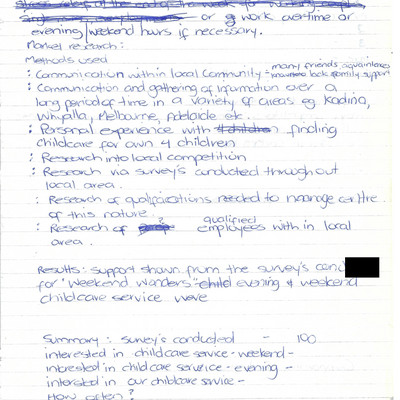 or work overtime or
evening/weekend hours if necessary.
Market research:
Methods used
: Communication within local Community - many friends, aquaintances
lack family support
: Communication and gathering of information over a
long period of time in a variety of areas eg Kadina,
Whyalla, Melbourne, Adelaide etc.
: Personal experience with finding
childcare for own 4 children
: Research into local competition
: Research via survey's conducted throughout
local area.
: Research of qualifications needed to manage centre
of this nature.
: Research of ? qualified employees with in local
area.
Results: support shown from the survey's
for "Weekend Wanders" evening & weekend
childcare service were
Summary: survey's conducted - 100
interested in childcare service - weekend -
interested in childcare service - evening -
interested in our childcare service -
How often?